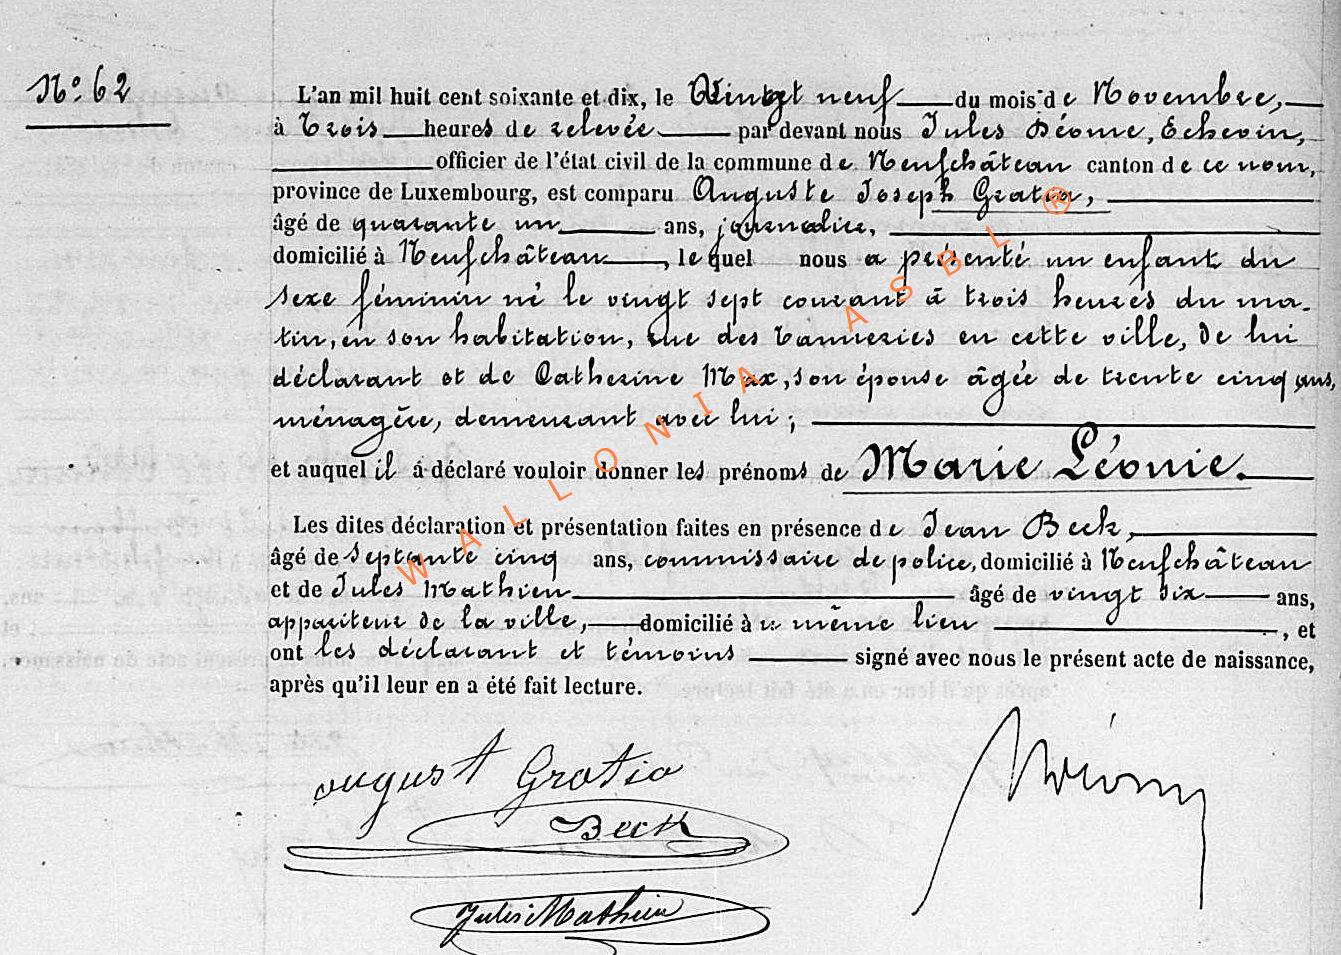 N° 62
L'an mil huit cent soixante et dix, le Vingt neuf du mois de Novembre,
à Trois heures de relevée par devant nous Jules Déome, Echevin,
officier de l'état civil de la commune de Neufchâteau canton de ce nom,
province de Luxembourg, est comparu Auguste Joseph Gratia,
âgé de quarante un ans, journalier,
domicilié à Neufchâteau, lequel nous a présenté un enfant du
sexe féminin né le vingt sept courant à trois heures du ma-
tin, en son habitation, rue des Tanneries en cette ville, de lui
déclarant et de Catherine Max, son épouse âgée de trente cinq ans,
ménagère, demeurant avec lui ;
et auquel il á déclaré vouloir donner les prénoms de Marie Léonie.
Les dites déclaration et présentation faites en présence de Jean Beck,
âgé de septante cinq ans, commissaire de police, domicilié à Neufchâteau
et de Jules Mathieu âgé de vingt dix ans,
appariteur de la ville, domicilié à u même lieu, et
ont les déclarant et témoins signé avec nous le présent acte de naissance,
après qu'il leur en a été fait lecture.
august Gratia
Beck
Jules Mathieu
WALLONIA ASBL ®